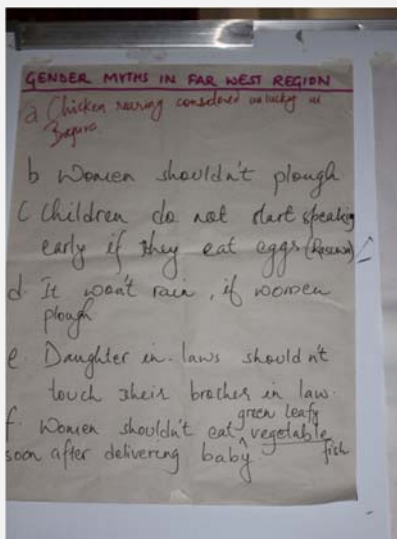 GENDER MYTHS IN FAR WEST REGION
a Chicken rearing considered unlucky in
Bajura
b Women shouldn't plough
c Children do not start speaking
early if they eat eggs (Rasuwa)
d. It won't rain, if women
plough
e. Daughter in-laws shouldn't
touch their brother in law.
f. Women shouldn't eat green leafy vegetable
soon after delivering baby fish